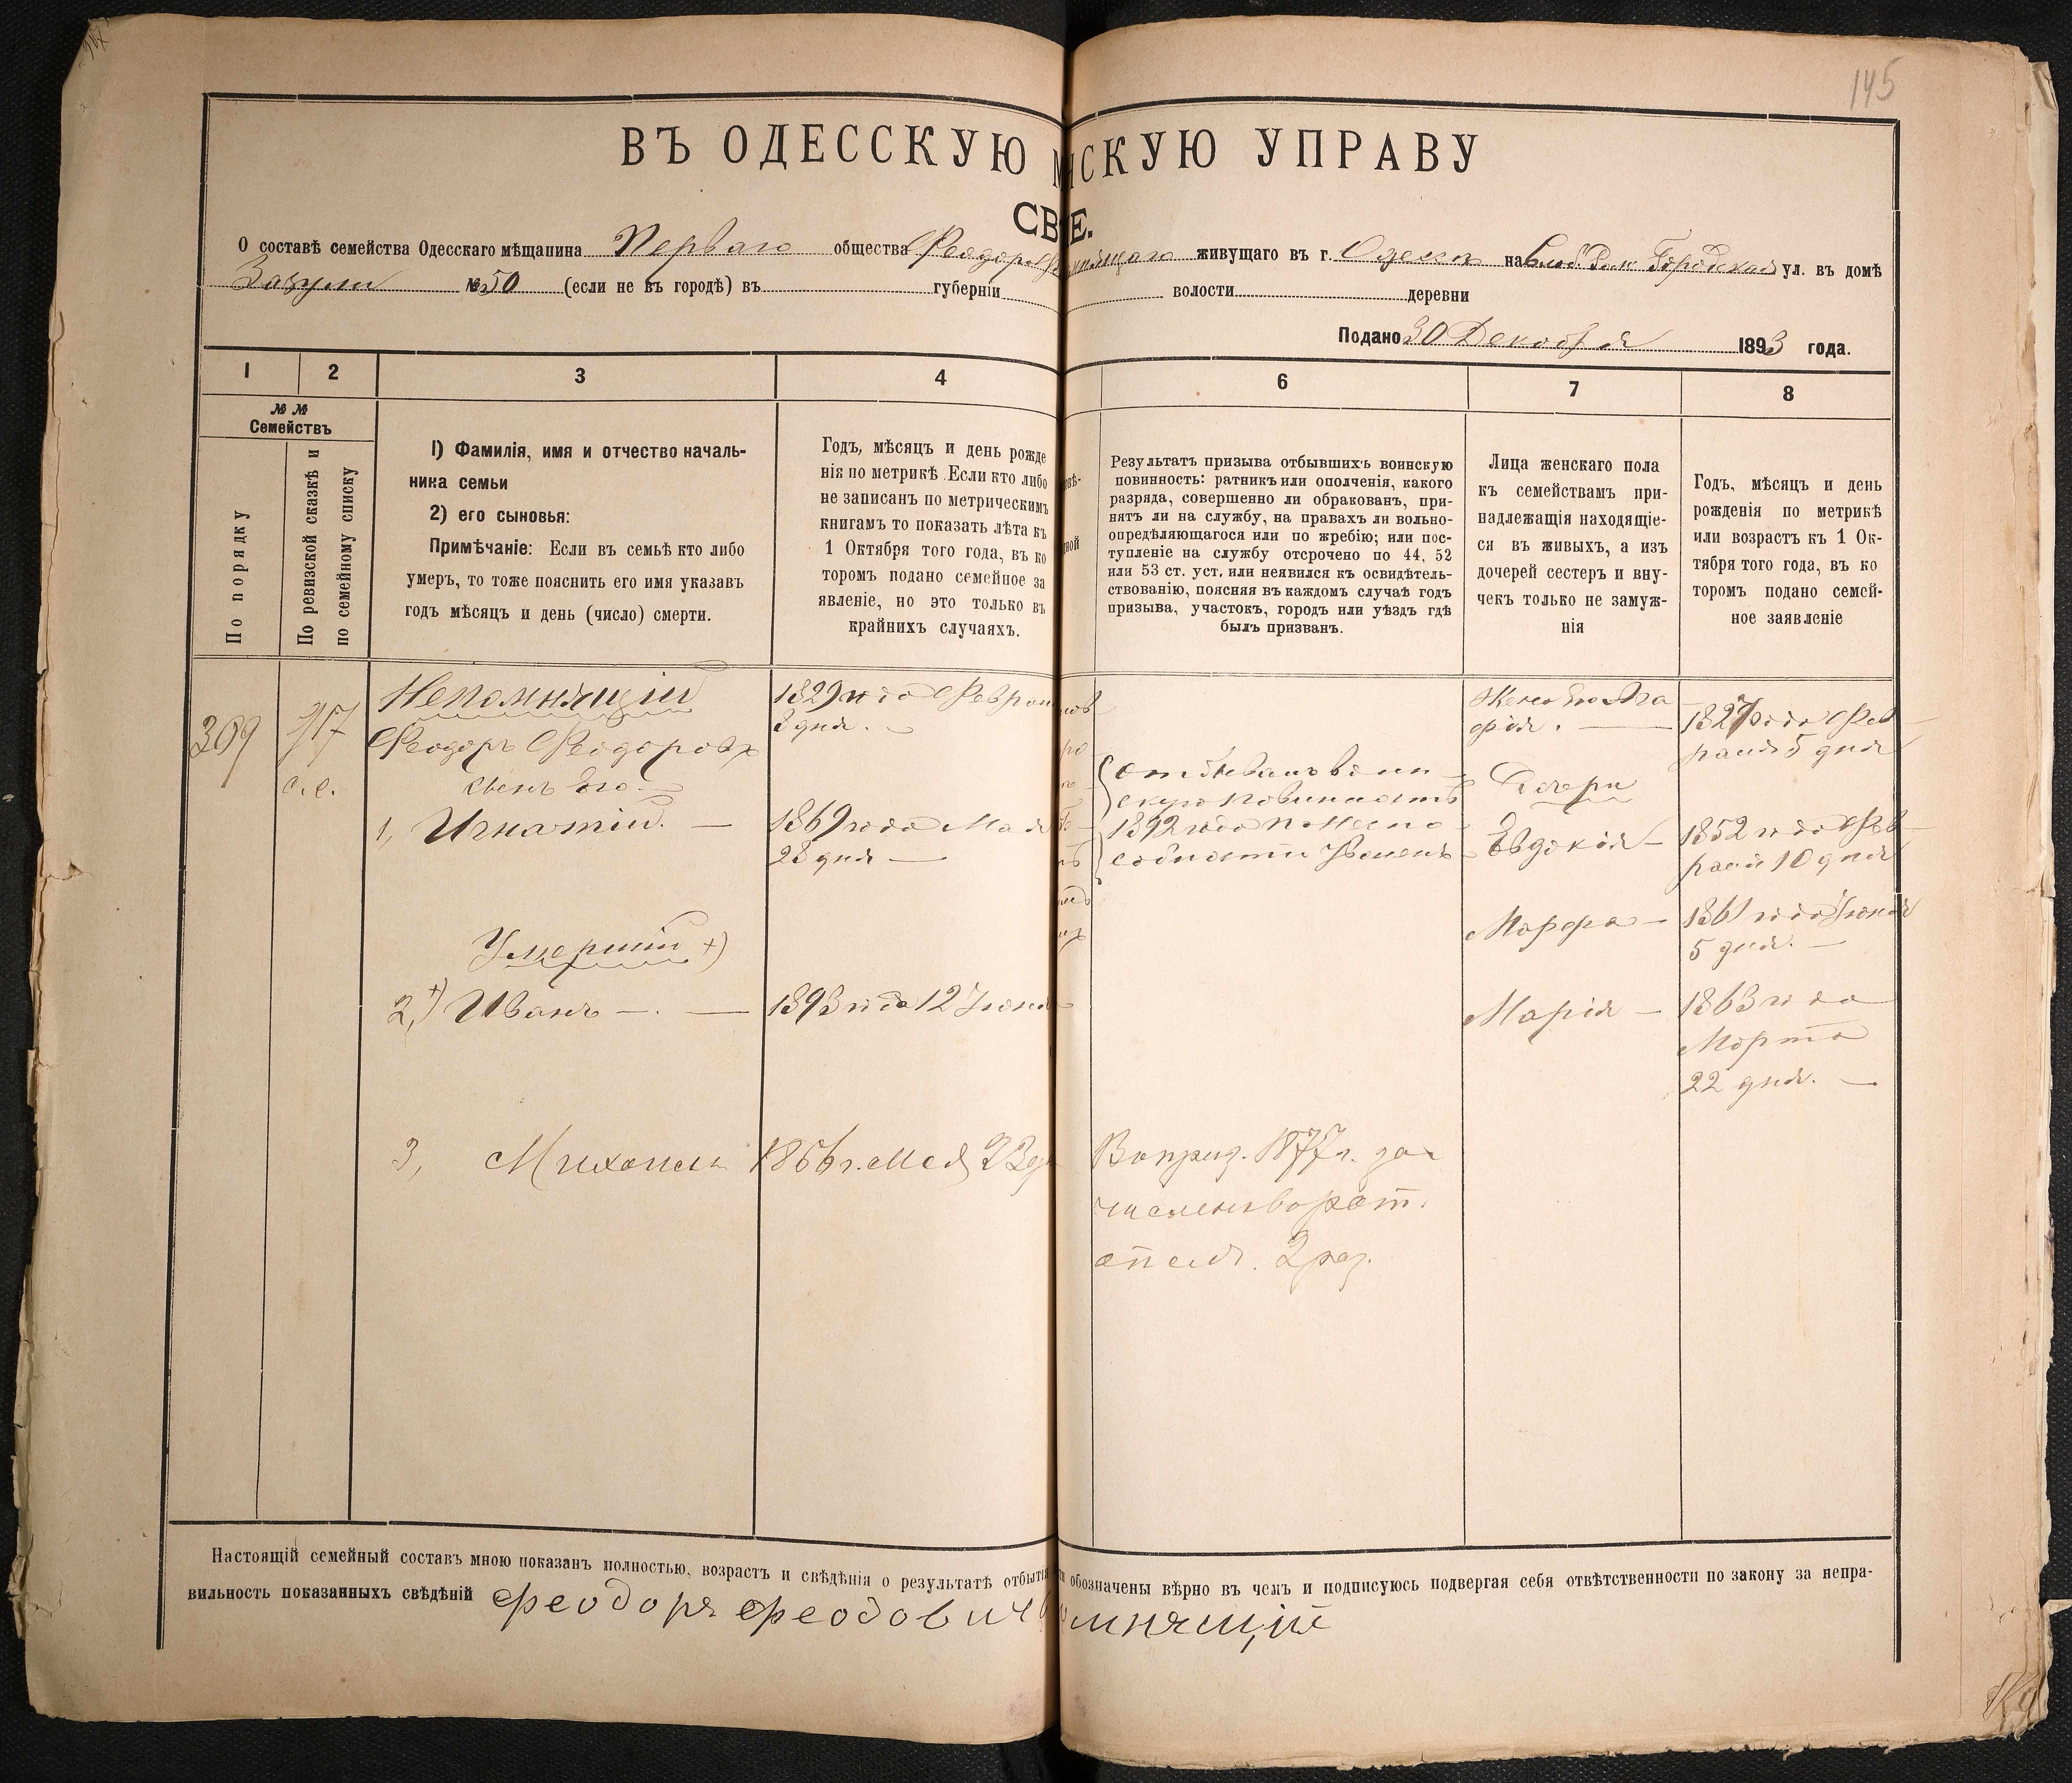 145
ВЪ ОДЕССКУЮ М НСКУЮ УПРАВУ
СВ Е.
О составѣ семейства Одесскаго мѣщанина Перваго общества Феодора мнящаго живущаго въ г. Одессѣ на Городская ул. въ домѣ
Зазули № 50 (если не въ городѣ) въ губерніи волости деревни
Подано 30 Декабря 1893 года.
1 2 3 4 6 7 8
№ №
Семействъ
По порядку
По ревизской сказкѣ и
по семейному списку
1) Фамилія, имя и отчество началь-
ника семьи
2) его сыновья:
Примѣчаніе: Если въ семьѣ кто либо
умеръ, то тоже пояснить его имя указавъ
годъ мѣсяцъ и день (число) смерти.
Годъ, мѣсяцъ и день рожде
нія по метрикѣ. Если кто либо
не записанъ по метрическимъ
книгамъ то показать лѣта къ
1 Октября того года, въ ко
торомъ подано семейное за
явленіе, но это только въ
крайнихъ случаяхъ.
Результатъ призыва отбывшихъ воинскую
повинность: ратникъ или ополченія, какого
разряда, совершенно ли обракованъ, при-
нятъ ли на службу, на правахъ ли вольно-
опредѣляющагося или по жребію; или пос-
тупленіе на службу отсрочено по 44, 52
или 53 ст. уст. или неявился къ освидѣтель-
ствованію, поясняя въ каждомъ случаѣ годъ
призыва, участокъ, городъ или уѣздъ гдѣ
былъ призванъ.
Лица женскаго пола
къ семействамъ при-
надлежащія находящіе-
ся въ живыхъ, а изъ
дочерей сестеръ и вну-
чекъ только не замуж-
нія
Годъ, мѣсяцъ и день
рожденія по метрикѣ
или возрастъ къ 1 Ок-
тября того года, въ ко
торомъ подано семей-
ное заявленіе
309
717
с. с.
Непомнящій
Феодоръ Феодоровъ
Сынъ Его
1, Игнатій. —
Умершій +)
2, +) Иванъ — . —
3, Михаилъ
1829 года Февраля
8 дня. —
1869 года Мая
28 дня —
1893 года 12 Іюня
1856 г. Мая 22 дня
Отбывалъ воин
скую повинность
1892 года по неспо
собности уволенъ
Въ призывъ 1877 г. за
численъ в рат.
опол. 2 раз.
Жена Его Ага
фія. —
Дочери
Евдокія —
Марфа —
Марія —
1827 года Фев
раля 5 дня
1852 года Фев
раля 10 дня
1861 года Іюня
5 дня. —
1863 года
Марта
22 дня. —
Настоящій семейный составъ мною показанъ полностью, возрастъ и свѣдѣнія о результатѣ отбытія и обозначены вѣрно въ чемъ и подписуюсь подвергая себя отвѣтственности по закону за непра-
вильность показанныхъ свѣдѣній Феодоръ Феодович омнящій